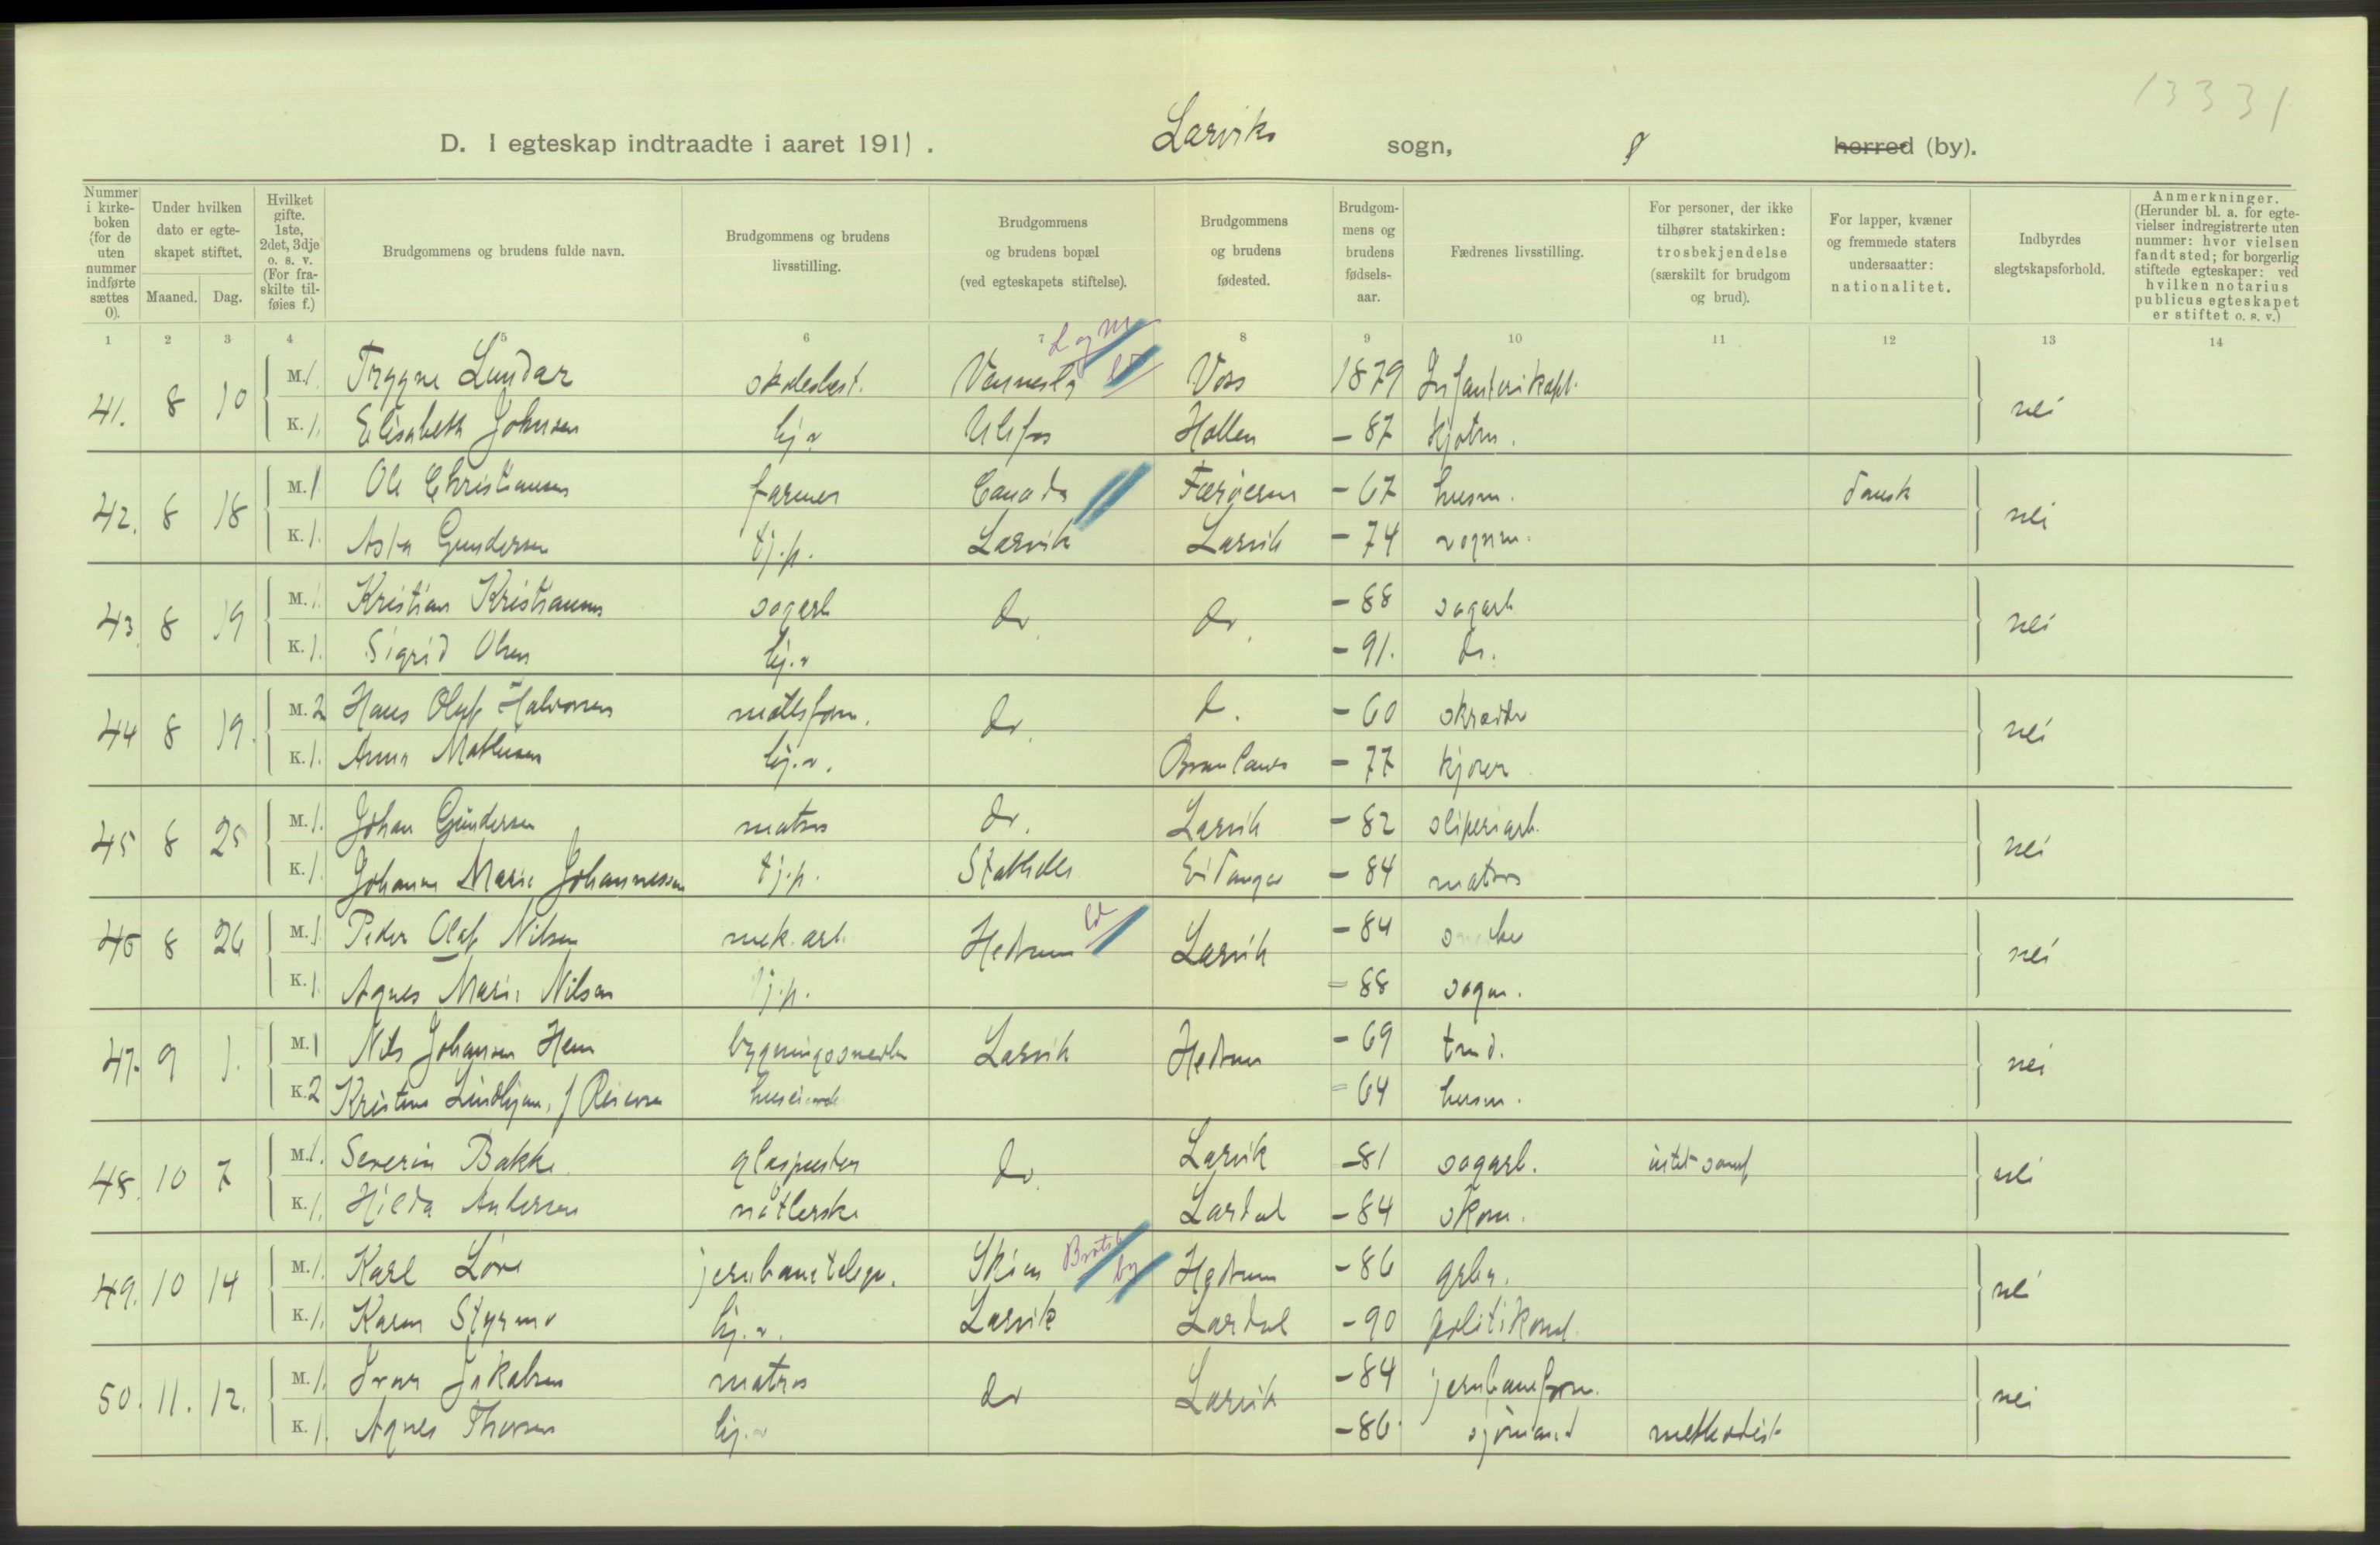 13331
D. I egteskap indtraadte i aaret 1911. Larviks sogn, herred (by).
Nummer i kirke-boken (for de uten nummer indførte sættes 0).
Under hvilken dato er egte-skapet stiftet.
Maaned. Dag.
Hvilket gifte. 1ste, 2det, 3dje o. s. v. (For fra-skilte til-føies f.)
Brudgommens og brudens fulde navn.
Brudgommens og brudens livsstilling.
Brudgommens og brudens bopæl (ved egteskapets stiftelse).
Brudgommens og brudens fødested.
Brudgom-mens og brudens fødsels-aar.
Fædrenes livsstilling.
For personer, der ikke tilhører statskirken: trosbekjendelse (særskilt for brudgom og brud).
For lapper, kvæner og fremmede staters undersaatter: nationalitet.
Indbyrdes slegtskapsforhold.
Anmerkninger. (Herunder bl. a. for egte-vielser indregistrerte uten nummer: hvor vielsen fandt sted; for borgerlig stiftede egteskaper: ved hvilken notarius publicus egteskapet er stiftet o. s. v.)
1 2 3 4 5 6 7 8 9 10 11 12 13 14
41. 8 10 M. 1. Trygve Lundar Voss 1879 nei
K. 1. Elisabeth Johnsen hj. v Ulefos Hollen - 87
42. 8 18 M. 1 Ole Christiansen farmer Canada Færøerne - 67 husm. dansk nei
K. 1. Asta Gundersen tj.p. Larvik Larvik - 74 vognm.
43. 8 19 M. 1. Kristian Kristiansen sagarb do do - 88 sagarb nei
K. 1. Sigrid Olsen hj. v - 91. do.
44 8 19. M. 2 Hans Oluf Halvorsen do. d. - 60 skrædder nei
K. 1. Anna Mathisen hj. v. Brunlanes - 77 kjører
45 8 25 M. 1. Johan Gundersen matros do. Larvik - 82 sliperiarb. nei
K. 1. Johanne Marie Johannessen tj.p. Stathelle Eidanger - 84 matros
46 8 26 M. 1 Peder Olaf Nilsen mek. arb. Hedrum Larvik - 84 nei
K. 1. Agnes Marie Nilsen tj.p. - 88 sagm.
47. 9 1. M. 1 Nils Johansen Hem bygningssnedker Larvik Hedrum - 69 nei
K. 2 Kristine huseierske - 64 husm.
48. 10 7 M. 1. Severin Bakke glaspuster do. Larvik - 81 sagarb. nei
K. 1. Hilda Andersen Lardal - 84 skom.
49. 10 14 M. 1. Karl Skien Bratsb by Hedrum - 86 grbr. nei
K. 1. Karen Styrmo hj. v. Larvik Lardal - 90
50. 11. 12. M. 1. Ivar Jakobsen matros do Larvik - 84 jernbaneform. nei
K. 1. Agnes Thorsen hj. v - 86. sjømand methodist